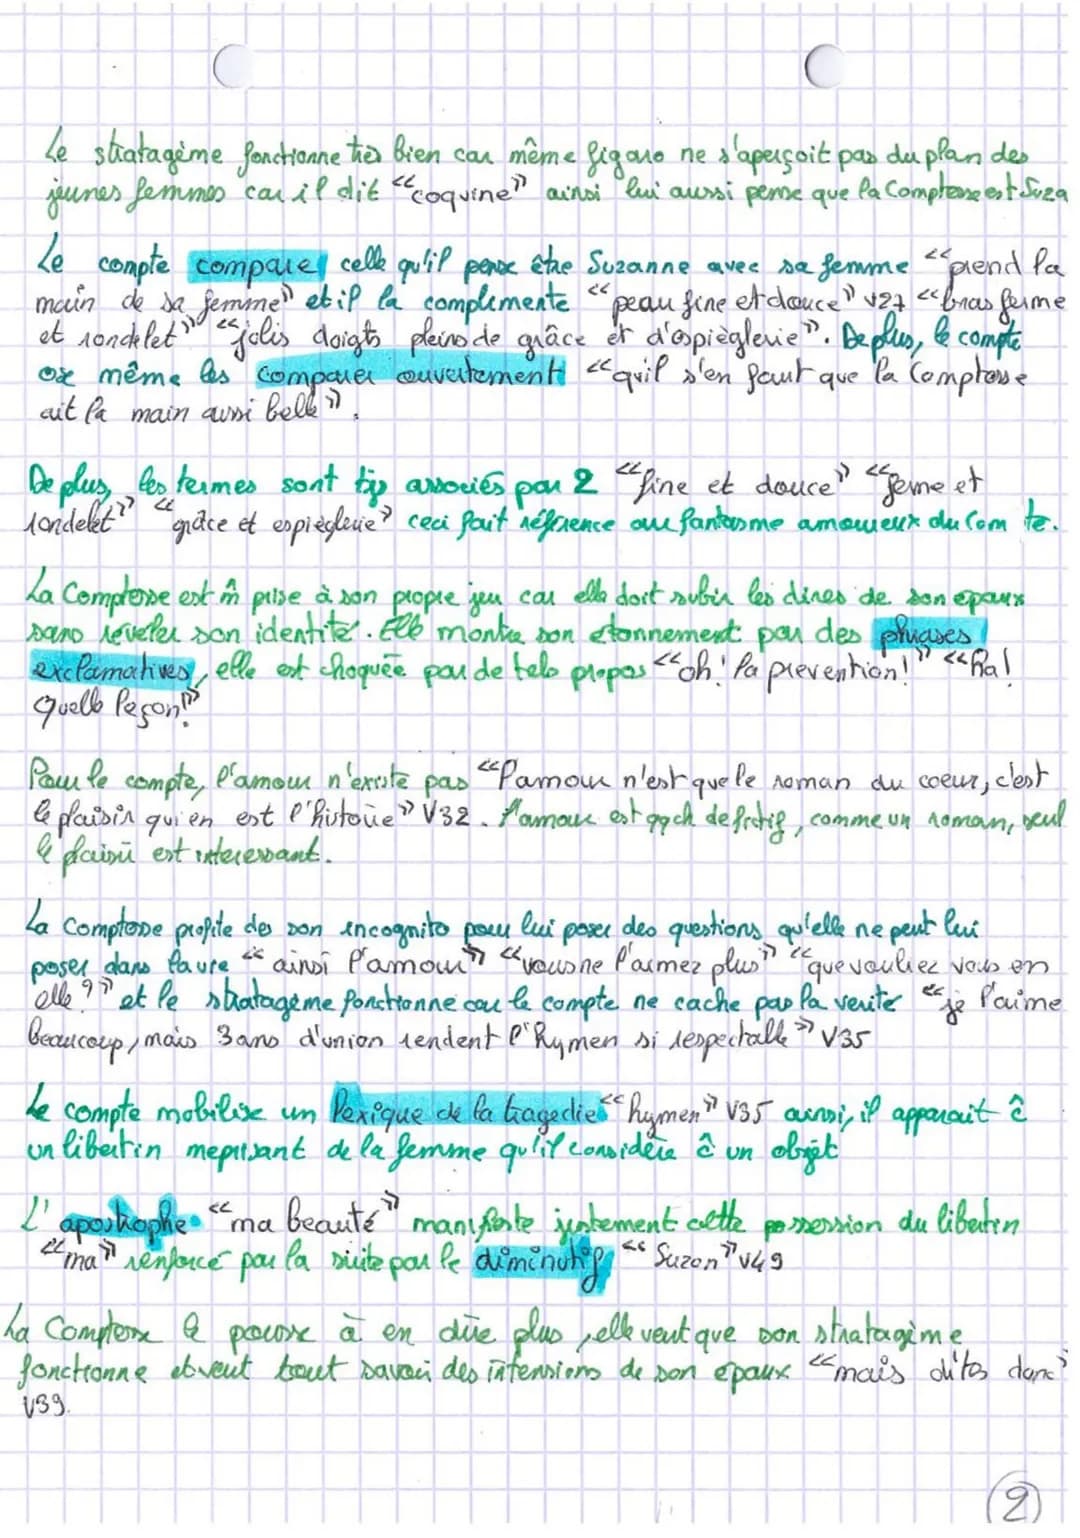 Le stratagème fonctionne très bien car même figaro ne s'aperçoit pas du plan des
jeunes femmes car il dit "coquine" ainsi lui aussi pense que la Comptesse est Suza
Le compte compare celle qu'il pense être Suzanne avec sa femme "prend la
main de sa femme" et il la complimente "peau fine et douce" v27 "bras ferme
et rondelet" "jolis doigts pleins de grâce et d'espièglerie". De plus, le compte
ose même les comparer ouvertement "qu'il s'en faut que la Comptesse
ait la main aussi belle".
De plus, les termes sont tjs associés par 2 "fine et douce" "ferme et
rondelet" "grâce et espièglerie" ceci fait référence au fantasme amoureux du Com te.
La Comptesse est m̂ prise à son propre jeu car elle doit subir les dires de son epoux
sans reveler son identité. Elle montre son etonnement par des phrases
exclamatives, elle est choquée par de tels propos "oh! la prevention!" "ha!
quelle leçon!"
Pour le compte, l'amour n'existe pas "l'amour n'est que le roman du coeur, c'est
le plaisir qui en est l'histoire" V32. l'amour est qqch de fictif, comme un roman, seul
le plaisir est interessant.
La Comptesse profite des son incognito pour lui poser des questions qu'elle ne peut lui
poser dans la vre "ainsi l'amour" "vous ne l'aimez plus" "que vouliez vous en
elle?" et le stratagème fonctionne car le compte ne cache pas la verité "je l'aime
beaucoup, mais 3 ans d'union rendent l'hymen si respectable" V35
Le compte mobilise un lexique de la tragedie "hymen" V35 ainsi, il apparait ĉ
un libertin meprisant de la femme qu'il considère ĉ un objet
L'apostrophe "ma beauté" manifeste justement cette possession du libertin
"ma" renforcé par la suite par le diminutif "Suzon" v49
La Comptesse le pousse à en dire plus, elle veut que son stratagème
fonctionne et veut tout savoir des intensions de son epoux "mais dites donc"
V39.
2